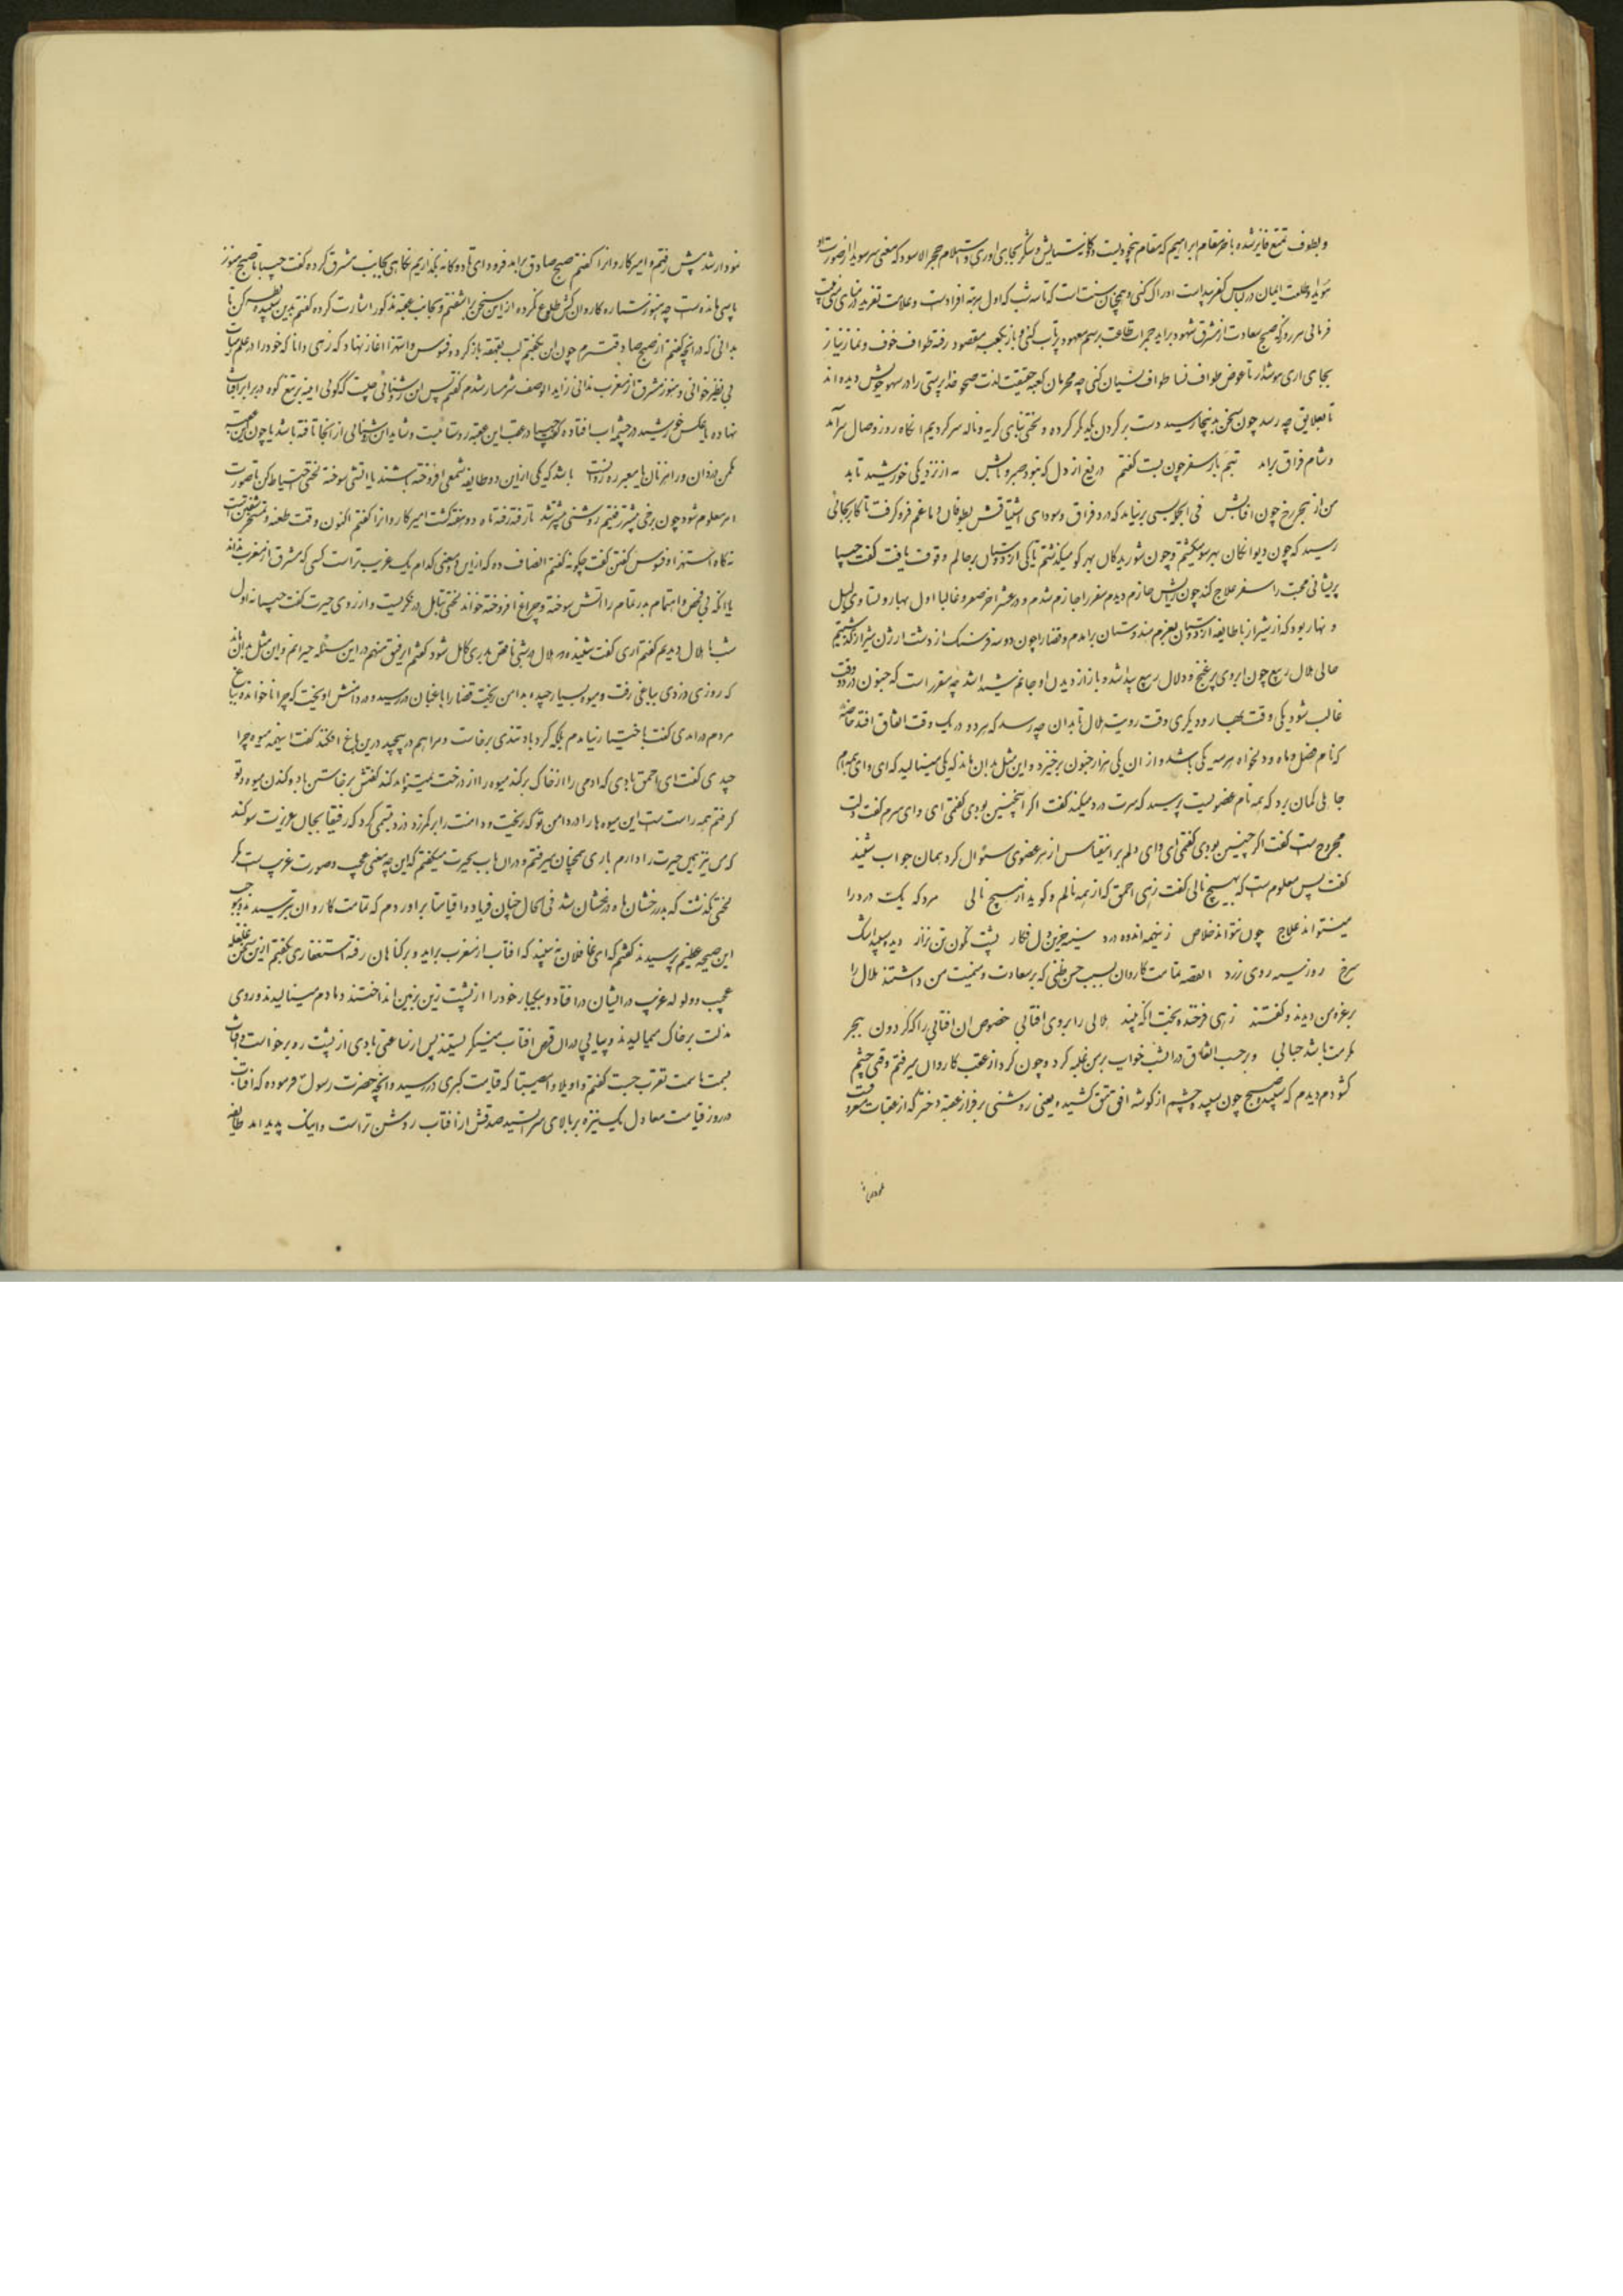 و بطوف تمتع فایز شده باخر مقام ابراهیم که مقام بیخودیست دوگانه ستایش و شکر بجای اوری و استلام حجر الاسود که معنی سر سویدا از صورت او
هویدا و طلعت ایمان در لباس کفر پیداست ادراک کنی و همچنان سنتست که تا سه شب که اول مرتبه افرادست و علامت تفرید در منای منی وقت
فرمائی هر روز که صبح سعادت از مشرق شهود براید جمرات طاعت برسم معهود پرتاب کنی و باز بکعبه مقصود رفته طواف خوف و نماز نیاز
بجای اری هوشدار تا عوض طواف نسا طواف نسیان کنی چه محرمان کعبه حقیقت لذت صحو خدا پرستی را در سهو خویش دیده اند
تا بعلایق چه رسد چون سخن بدینجا رسید دست بر گردن یکدیگر کرده و لختی بنای گریه و ناله سر کردیم انگاه روز وصال سر آمد
و شام فراق برامد بتیم بار سفر چون بست گفتم دریغ از دل که نبود صبر و تابش نه از نزدیکی خورشید تابد
من از هجر رخ چون افتابش فی الجمله بسی بر نیامد که درد فراق و سودای اشتیاقش بطوفان دماغم فرو گرفت تا کار بجائی
رسید که چون دیوانگان بهر سو میگشتم و چون شوریدگان بهر کو میگذشتم تا یکی از دوستان بر حالم وقوف یافت گفت حبیبا
پریشانی محبت را سفر علاج کند چون رایش جازم دیدم سفر را جازم شدم و در عشر اخر صفر و غالبا اول بهار و تساوی لیل
و نهار بود که از شیراز با طایفه از دوستان بعزم هندوستان برامدم و قضا را چون دو سه فرسنک از دشت ارژن شیراز گذشتیم
حالی هلال ربیع چون ابروی پر غنج و دلال ربیع پیدا شد و باز از دیدن او جانم شیدا شد چه مقرر است که جنون در دو وقت
غالب شود یکی وقت بهار و دیگری وقت رویت هلال تا بدان چه رسد که هر دو در یک وقت اتفاق افتد خاصه
که نام فصل و ماه و دلخواه هر سه یکی باشد و از ان یکی هزار جنون برخیزد و این مثل بدان ماند که یکی مینالید که ای وای همه ام
جاهلی گمان برد که همه نام عضویست پرسید که سرت درد میکند گفت اگر اینچنین بودی گفتمی ای وای سرم گفت دلت
مجروح ست گفت اگر چنین بودی گفتمی ای وای دلم بر این قیاس از هر عضوی سئوال کرد همان جواب شنید
گفت پس معلوم ست که بهیچ نالی گفت زهی احمق که از همه نالم و گوید از هیچ نالی مرد که یک درد را
مینتواند علاج چون بتواند خلاص ز اینهمه اندوه درد سینه حزین دل فکار پشت نگون تن نزار دیده سپید اشک
سرخ روز سیه روی زرد القصه تمامت کاروان بسبب حسن ظنی که بر سعادت و میمنت من داشتند هلال را
بر غره من دیدند و گفتند زهی فرخنده بخت انکه بیند هلالی را بروی افتابی خصوص ان افتابی را که گردون بهجر
طلعت باشد حبابی و برحسب اتفاق در انشب خواب بر من غلبه کرد و چون گرد از عقب کاروان میرفتم وقتی چشم
گشودم دیدم که سپیده صبح چون سپیده چشم از گوشه افق تتق کشیده یعنی روشنی بر فراز عقبه دختر که از عقبات معروفست
نمودار شد پیش رفتم و امیر کاروانرا گفتم صبح صادق برامد فرود ای تا دوگانه بگذاریم نگاهی بجانب مشرق کرده گفت حبیبا تا صبح هنوز
پاسی مانده ست چه هنوز ستاره کاروان کش طلوع نکرده از این سخن براشفتم و بجانب عقبه مذکور اشارت کرده گفتم بدین سپیده نظر کن تا
بدانی که در انچه گفتم از صبح صادقترم چون ان بگفتم لب بقهقهه باز کرده و فسوس و استهزا اغاز نهاد که زهی دانا که خود را در علم هیات
بی نظیر خوانی و هنوز مشرق از مغرب ندانی زاید الوصف شرمسار شدم گفتم پس این روشنائی چیست که گوئی اینه بر تیغ کوه در برابر افتاب
نهاده یا عکس خورشید در چشمه اب افتاده گفت حبیبا در عقب این عقبه روستائیست و شاید ان روشنائی از انجا تافته باشد یا چون این عقبه
مکمن دزدان و راهزنان یا معبر ره روانست باشد که یکی از این دو طایفه شمعی افروخته باشند یا اتشی سوخته لختی احتیاط کن تا صورت
امر معلوم شود چون برخی پیشتر رفتیم روشنی بیشتر شد تا رفته رفته ماه دو هفته گشت امیر کاروانرا گفتم اکنون وقت طعنه و تسخر منست
نه گاه استهزا و فسوس گفتن گفت چگونه گفتم انصاف ده که از این دو معنی کدام یک غریب تر است کسی که مشرق از مغرب نداند
یا انکه بی فحص و اهتمام بدر تمام را اتش سوخته و چراغ افروخته خواند لختی بتامل در نگریست و از روی حیرت گفت حبیبا نه اول
شب ما هلال دیدیم گفتم آری گفت شنیده که هلال در شبی ناقص بدری کامل شود گفتم ای رفیق منهم در این مسئله حیرانم و این مثل بدان ماند
که روزی دزدی بباغی رفت و میوه بسیار چیده بدامن ریخت قضا را باغبان در رسید و در دامنش اویخت که چرا ناخوانده بباغ
مردم درامدی گفت باختیار نیامدم بلکه گرد باد تندی برخاست و مرا بهم در پیچید در این باغ افکند گفت اینهمه میوه چرا
چیدی گفت ای احمق بادی که ادمی را از خاک برکند میوه را از درخت نیز تواند کند گفتش برخاستن باد و کندن میوه دو تو
گرفتم همه راست ست این میوه ها را در دامن تو که ریخت و دامنت را بر کمر زد دزد تبسمی کرد که رفیقا بجان عزیزت سوگند
که من نیز همین حیرت را دارم باری همچنان میرفتم و در ان باب بحیرت میگفتم که این چه معنی عجب و صورت غریب ست مگر
لختی نگذشت که بدر رخشان ماه درخشان شد فی الحال چنان فریاد وا قیامتا براوردم که تمامت کاروان بترسیدند و موجب
این صیحه عظیم پرسیدند گفتم که ای غافلان نه بینید که افتاب از مغرب براید و بر گناهان رفته استغفاری بگفتیم از این سخن غلغله
عجب و ولوله غریب در ایشان درافتاد و بیکبار خود را از پشت زین بزمین انداختند و مادم مینالیدند و روی
مذلت بر خاک میمالیدند و پیاپی در ان قرص افتاب مینگریستند پس از ساعتی بادی از پشت ره برخواست و افتاب
بسمت ما سمت تقرب جست گفتم واویلا و امصیبتا که قیامت کبری در رسید و انچه حضرت رسول فرموده که افتاب
در روز قیامت معادل یک نیزه بر بالای سر ایستد صدقش از افتاب روشن تر است و اینک پدید امد طایفه